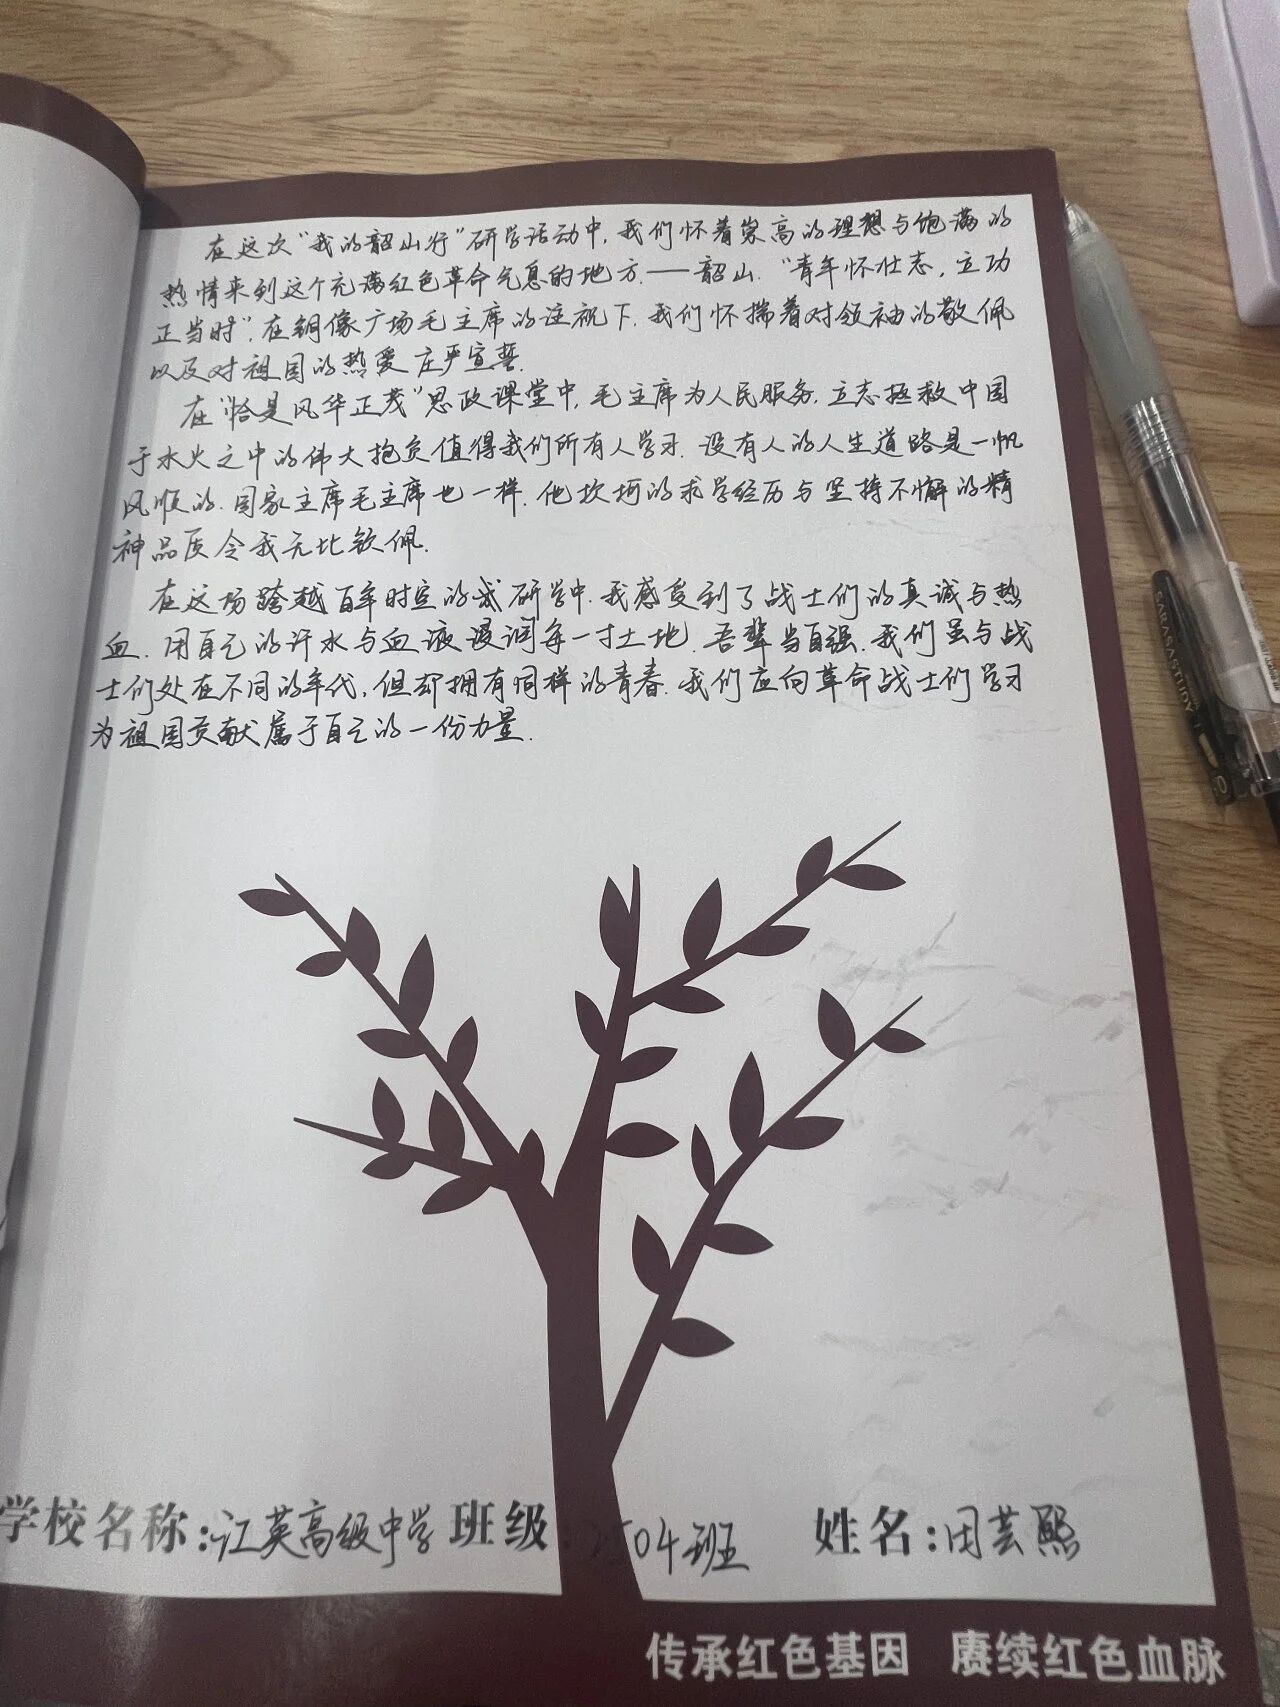 在这次“我的韶山行”研学活动中，我们怀着崇高的理想与饱满的
热情来到这个充满红色革命气息的地方——韶山．“青年怀壮志，立功
正当时”．在铜像广场毛主席的注视下．我们怀揣着对领袖的敬佩
以及对祖国的热爱庄严宣誓．
在“恰是风华正茂”思政课堂中，毛主席为人民服务．立志拯救中国
于水火之中的伟大抱负值得我们所有人学习．没有人的人生道路是一帆
风顺的．国家主席毛主席也一样．他坎坷的求学经历与坚持不懈的精
神品质令我无比钦佩．
在这场跨越百年时空的研学中．我感受到了战士们的真诚与热
血．用自己的汗水与血液浸润每一寸土地．吾辈当自强．我们虽与战
士们处在不同的年代，但却拥有同样的青春．我们应向革命战士们学习
为祖国贡献属于自己的一份力量．
学校名称：江英高级中学 班级：2504班 姓名：田芸熙
传承红色基因 赓续红色血脉
SARASA STUDY